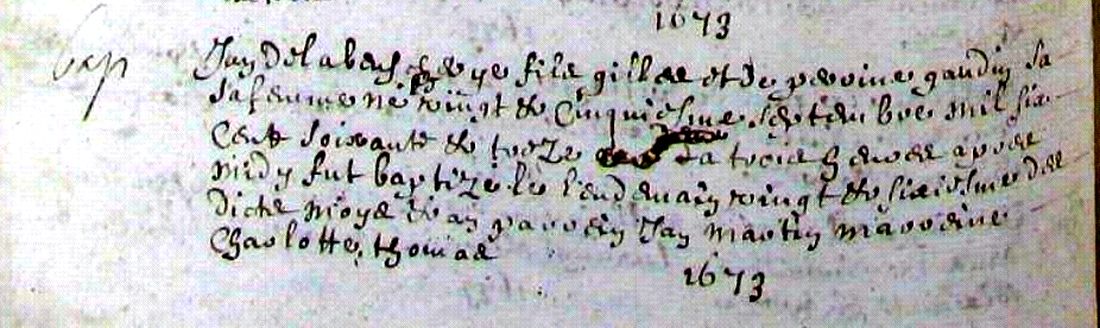 1673
bap
Jan Delabesch... fils gilles et de perrine gaudin sa
sa femme né vingt & cinquiesme septembre mil six
cent soixante & treze a trois heures apres
midy fut baptizé le lendemain vingt & sixiesme des
dicts moys & an parrein Jan martin marreine
Charlotte thomas
1673